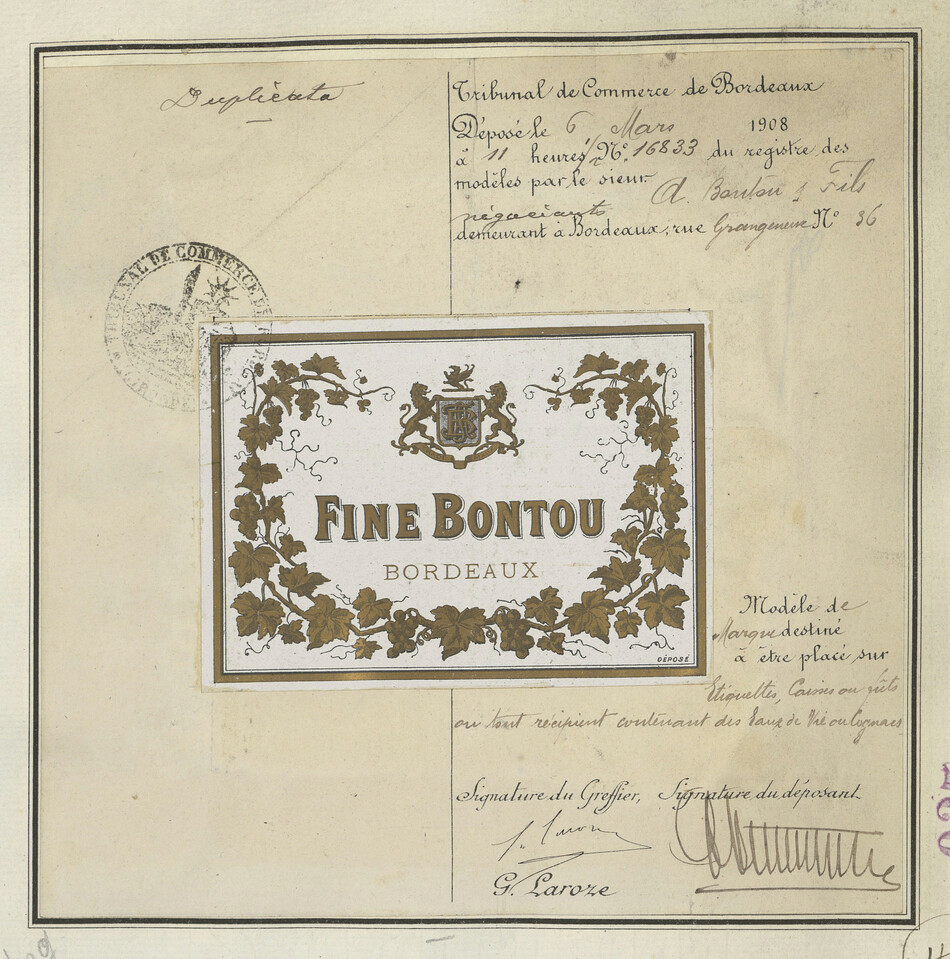 Duplicata
Tribunal de Commerce de Bordeaux
Déposé le 6 Mars 1908
à 11 heures 1/2 N° 16833 du registre des
modèles par le sieur A. Bontou & Fils
négociants
demeurant à Bordeaux, rue Grangeneuve N° 36
TRIBUNAL DE COMMERCE DE
FINE BONTOU
BORDEAUX
DÉPOSÉ
Modèle de
Marque destiné
à être placé sur
Etiquettes, Caisses ou fûts
ou tout récipient contenant des Eaux de Vie ou Cognacs
Signature du Greffier, Signature du déposant
G. Laroze